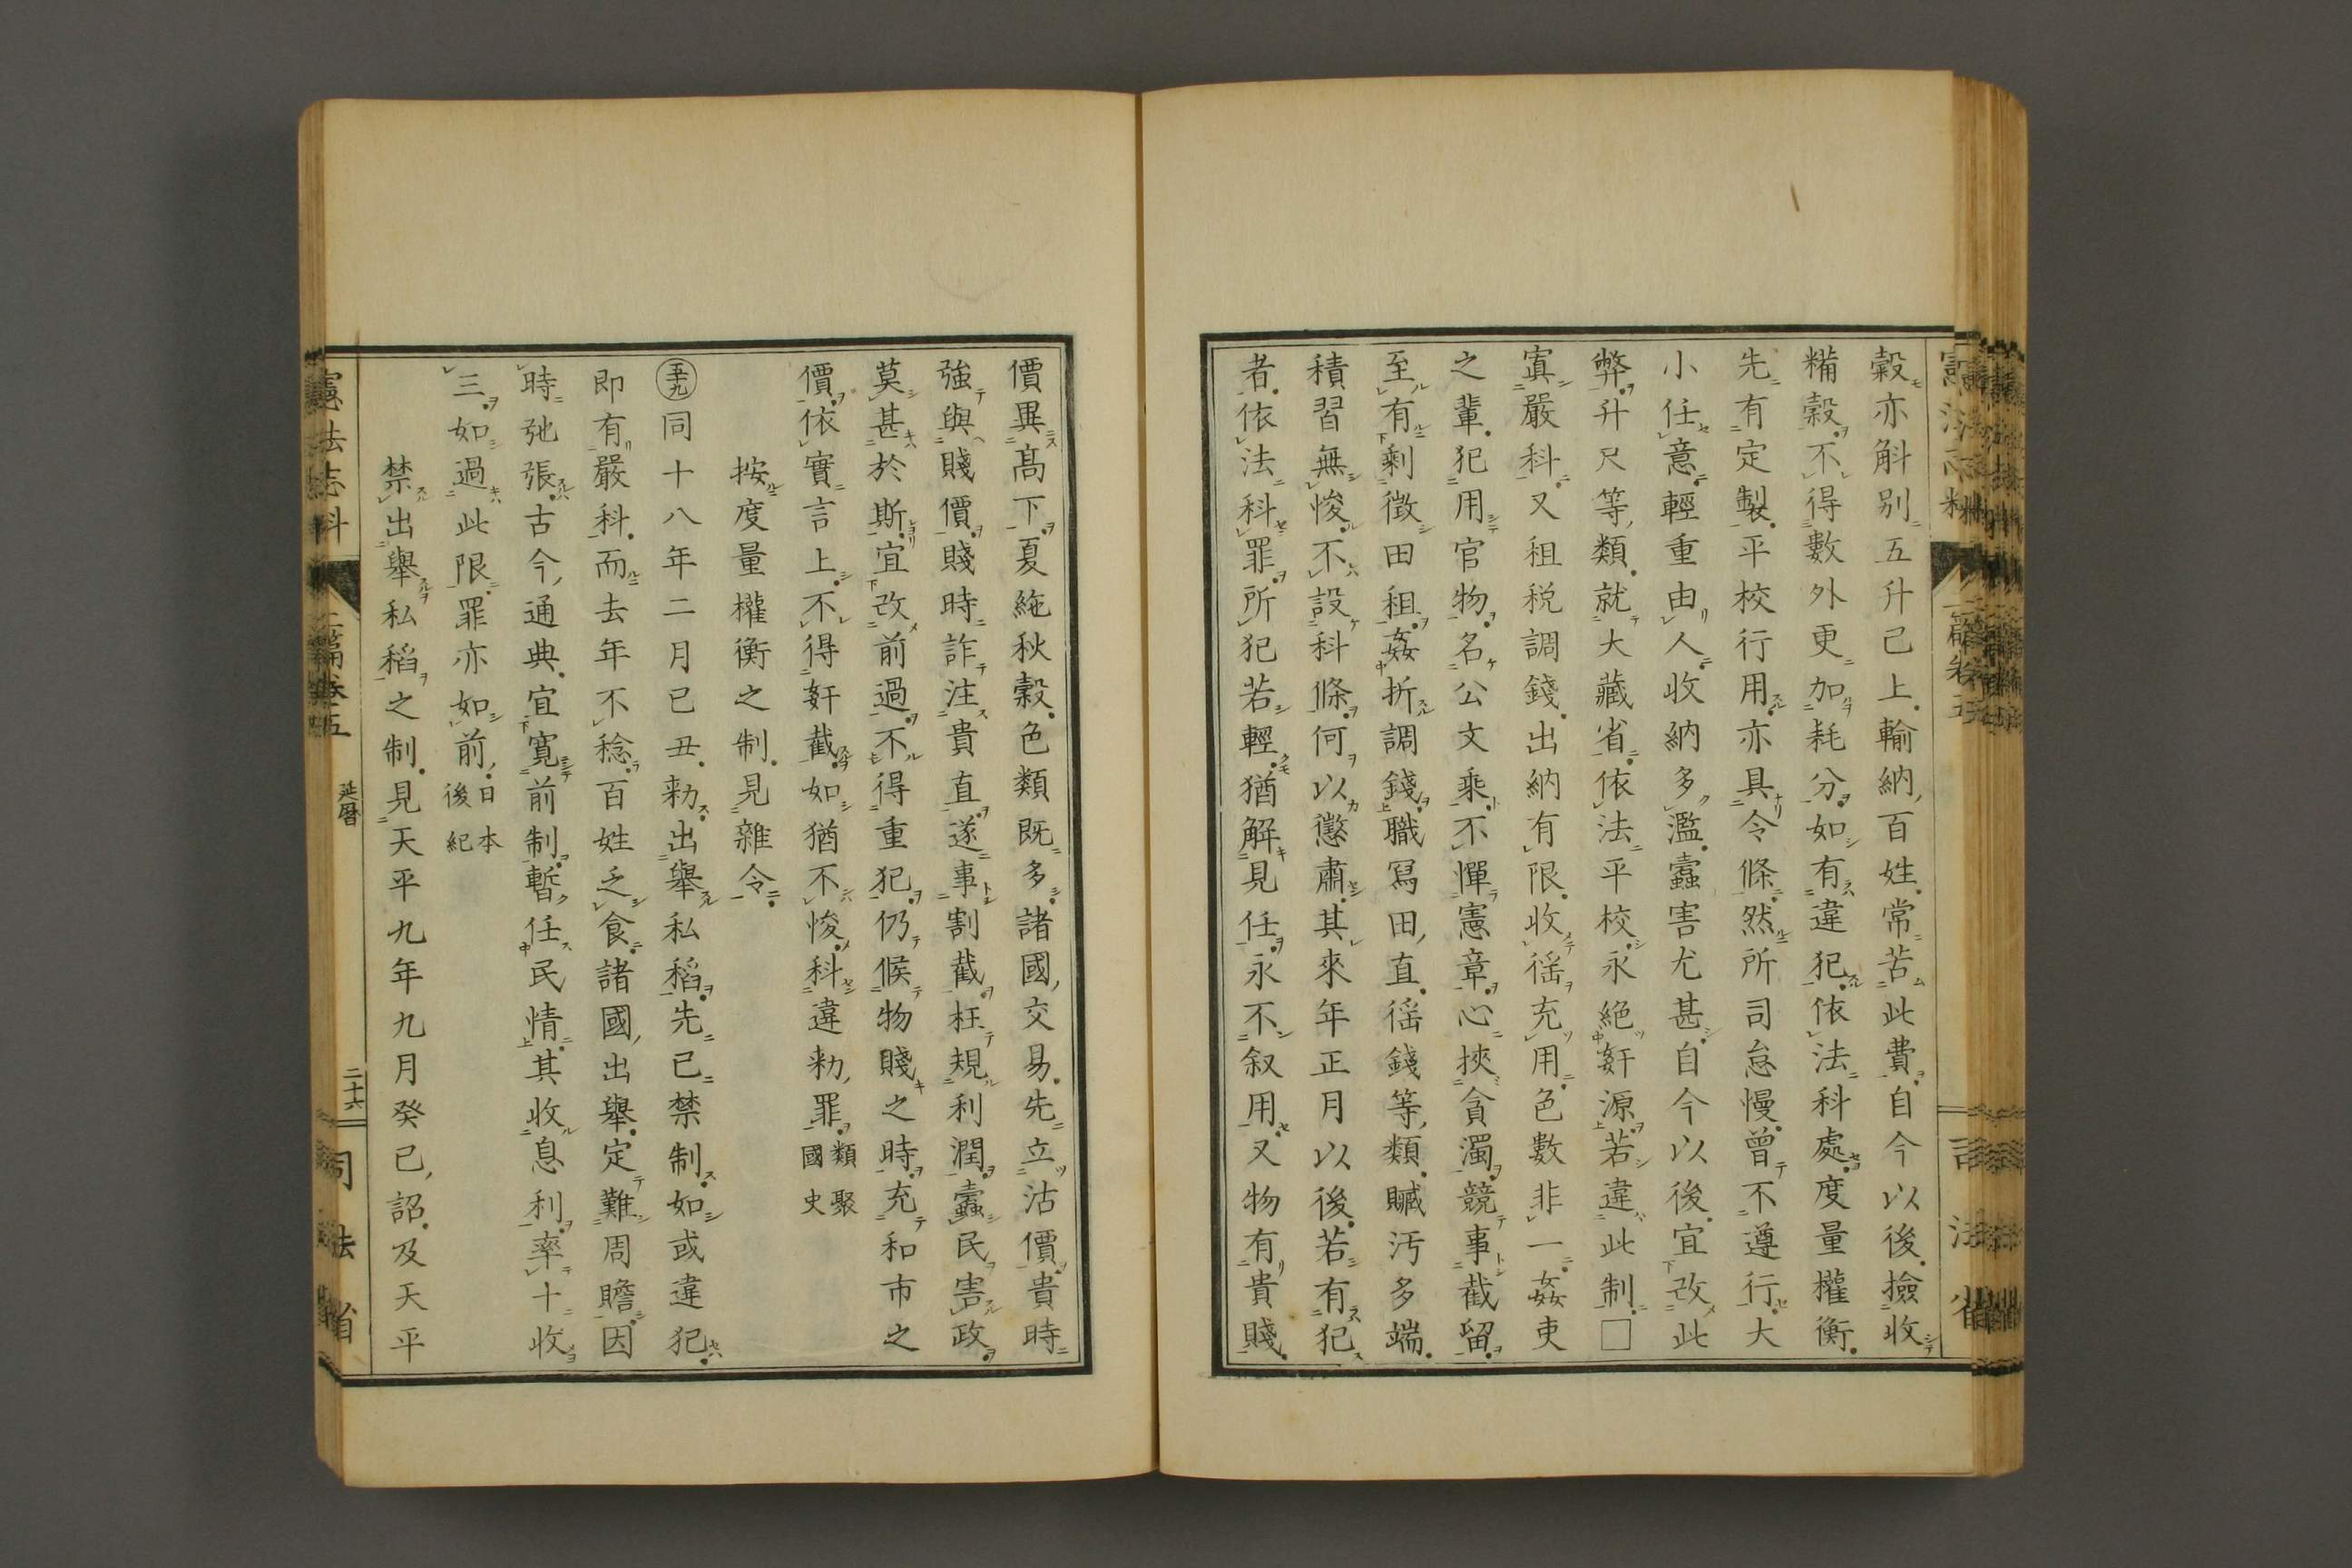 穀亦斛別五升已上輸納百姓常苦此費自今以後撿收
糒穀不得數外更加耗分如有違犯依法科處度量權衡
先有定製平校行用亦具令條然所司怠慢曾不遵行大
小任意輕重由人收納多濫蠹害尤甚自今以後宜改此
弊升尺等類就大藏省依法平校永絕奸源若違此制□
寘嚴科又租税調錢出納有限收徭充用色數非一姦吏
之輩犯用官物名公文乘不憚憲章心挾貪濁競事截留
至有剩徵田租姦折調錢職寫田直徭錢等類贓汚多端
積習無悛不設科條何以懲肅其來年正月以後若有犯
者依法科罪所犯若輕猶解見任永不叙用又物有貴賤
價異髙下夏絁秋穀色類既多諸國交易先立沽價貴時
強與賤價賤時詐注貴直遂事割截枉規利潤蠹民害政
莫甚於斯宜改前過不得重犯仍候物賤之時充和市之
價依實言上不得奸截如猶不悛科違勅罪類聚國史
按度量權衡之制見雜令
五十九同十八年二月已丑勅出舉私稻先已禁制如或違犯
即有嚴科而去年不稔百姓乏食諸國出舉定難周贍因
時弛張古今通典宜寬前制暫任民情其收息利率十收
三如過此限罪亦如前日本後紀
禁出舉私稻之制見天平九年九月癸已詔及天平
憲法志料 二篇卷五 延曆 二十六 司法省